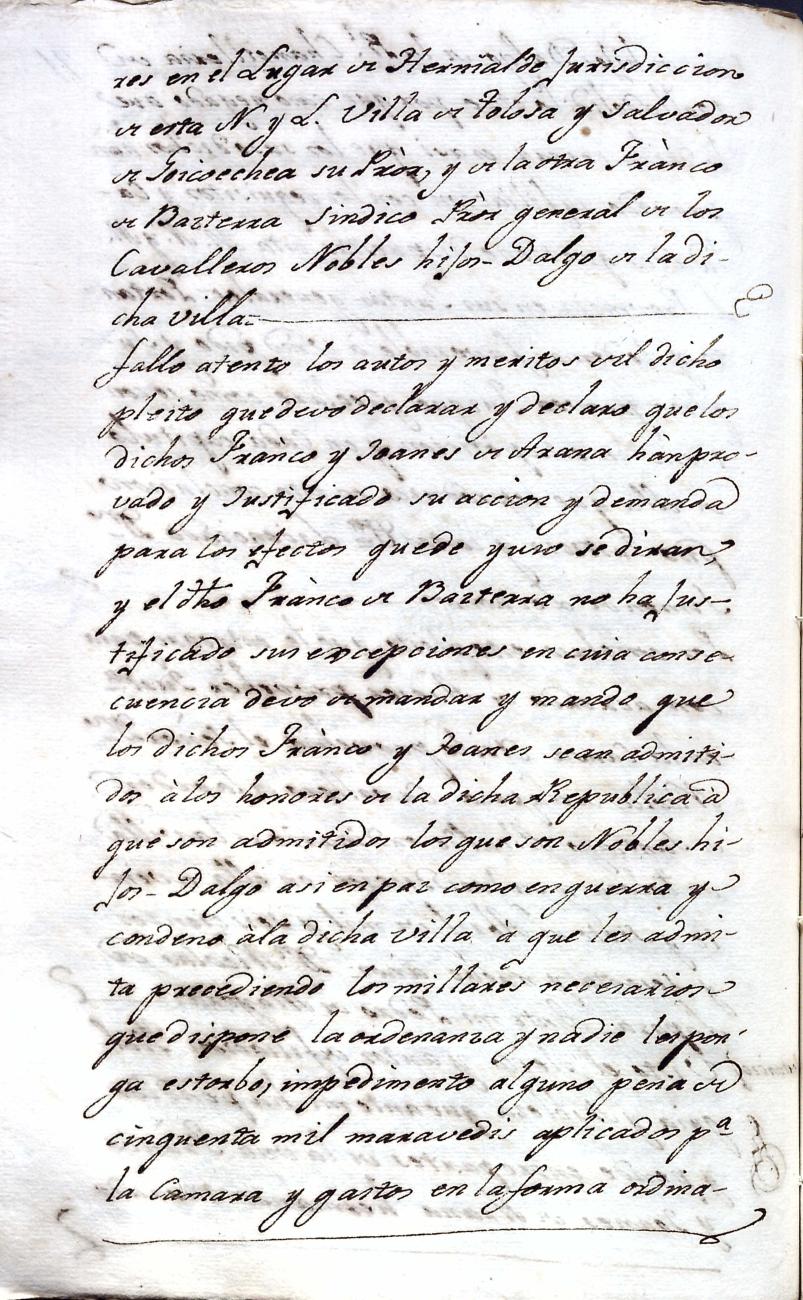 res en el Lugar de Hernialde Jurisdiccion
de esta N. y L. Villa de Tolosa y Salvador
de Goicoechea su Pròr, y de la otra Frànco
de Bazterra Sindico Pròr general de los
Cavalleros Nobles hijos-Dalgo de la di-
cha villa
fallo atento los autos y meritos del dicho
pleito que devo declarar y declaro que los
dichos Frànco y Joanes de Arana hàn pro-
vado y Justificado su accion y demanda
para los efectos que de yuso se diran,
y el dho Frànco de Bazterra no ha Jus-
tificado sus excepciones en cuia conse-
cuencia devo de mandar y mando que
los dichos Frànco y Joanes sean admiti-
dos à los honores de la dicha Republica à
que son admitidos los que son Nobles hi-
jos-Dalgo asi en paz como en guerra y
condeno à la dicha villa à que les admi-
ta precediendo los millares necesarios
que dispone la ordenanza y nadie les pon-
ga estorbo, impedimento alguno pena de
cinquenta mil maravedis aplicados pª
la Camara y gastos en la forma ordina-